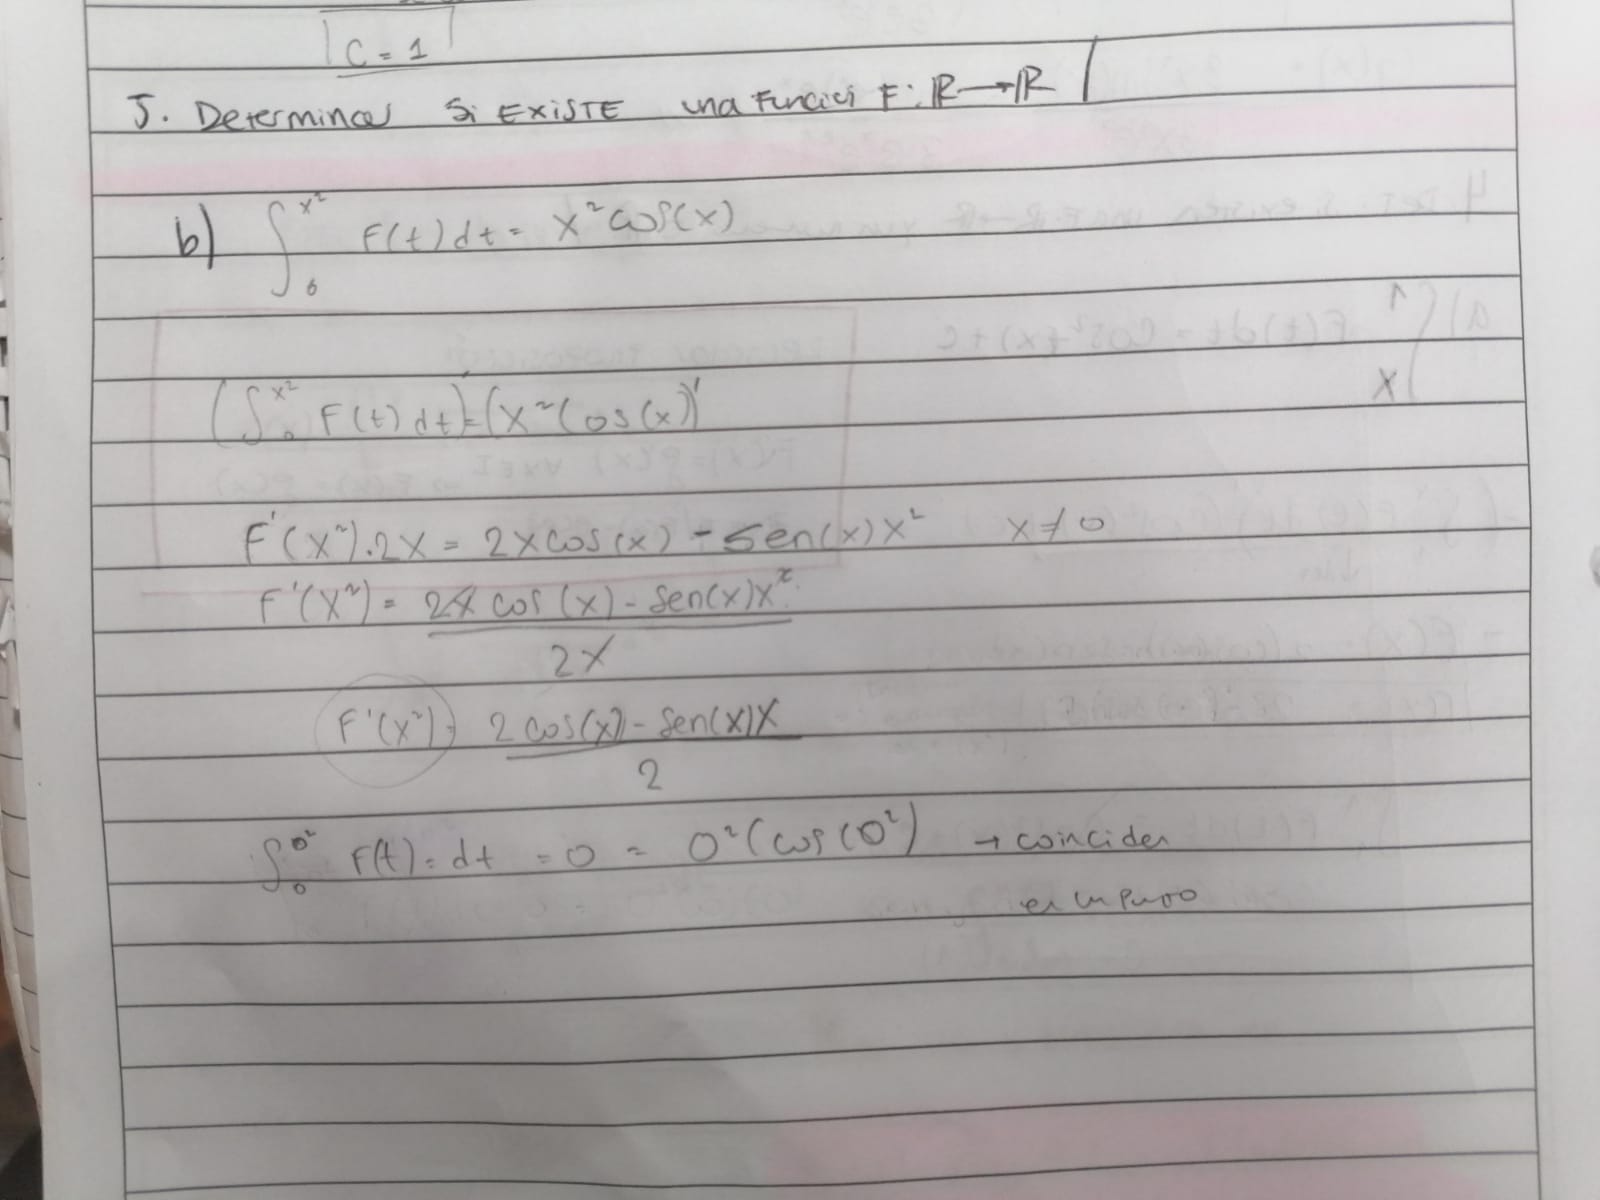 C = 1
5. Determinar si EXISTE una Función F: ℝ→ℝ /
b) ∫₀^x² F(t)dt = x² cos(x)
(∫₀^x² F(t)dt)' = (x² cos(x))'
F'(x²).2x = 2x cos(x) - sen(x)x² x≠0
F'(x²) = 2x cos(x) - sen(x)x²
2x
F'(x²) = 2 cos(x) - sen(x)x
2
∫₀^0² F(t) = dt = 0 = 0² (cos(0²) → coinciden
en un punto